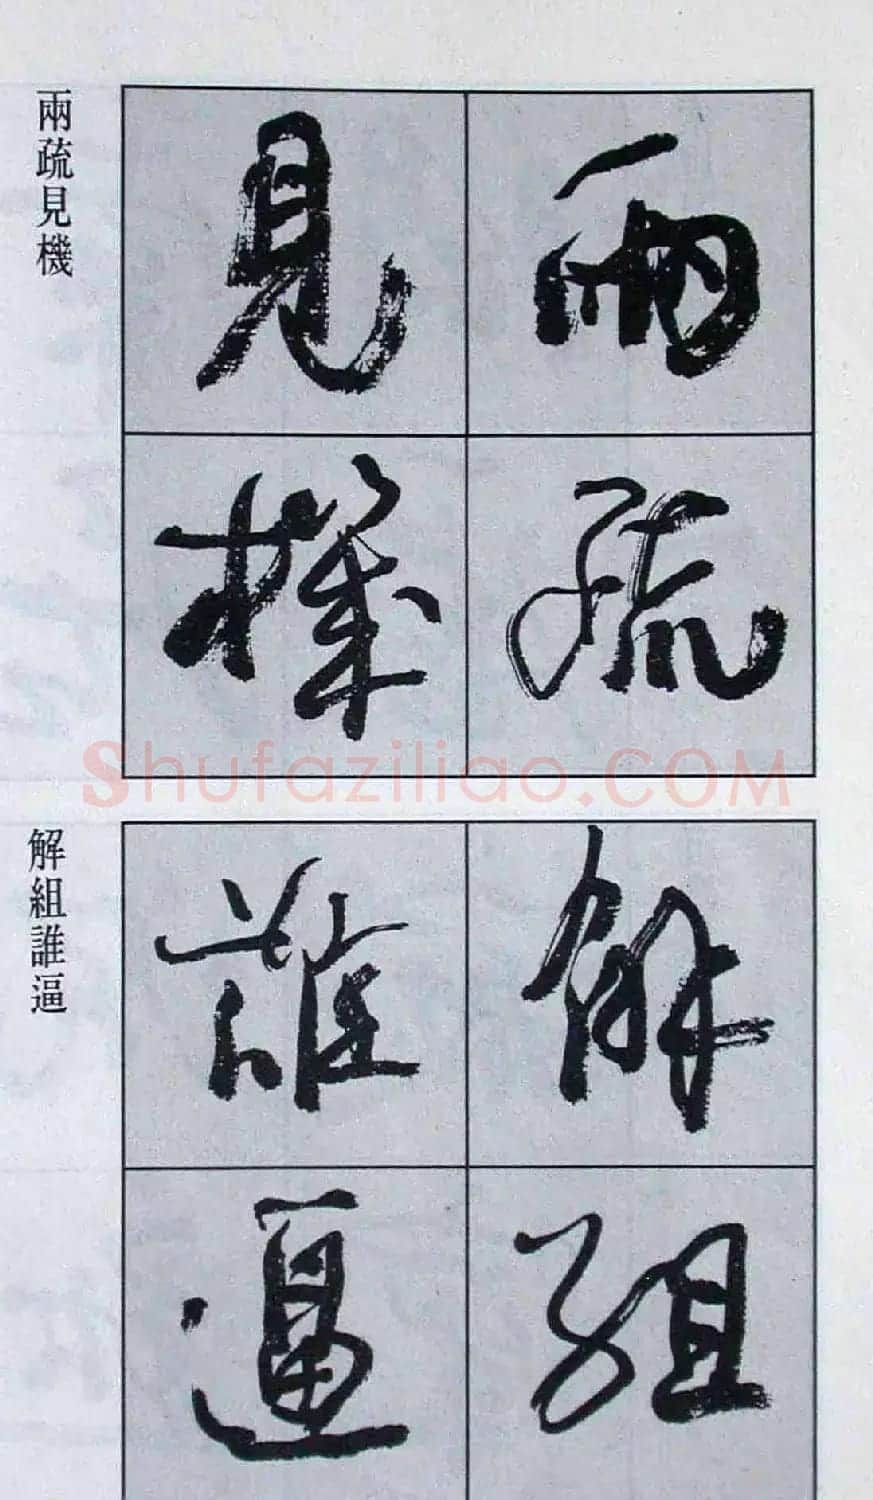 兩疏
見機
兩疏見機
解組
誰逼
解組誰逼
Shufaziliao.COM